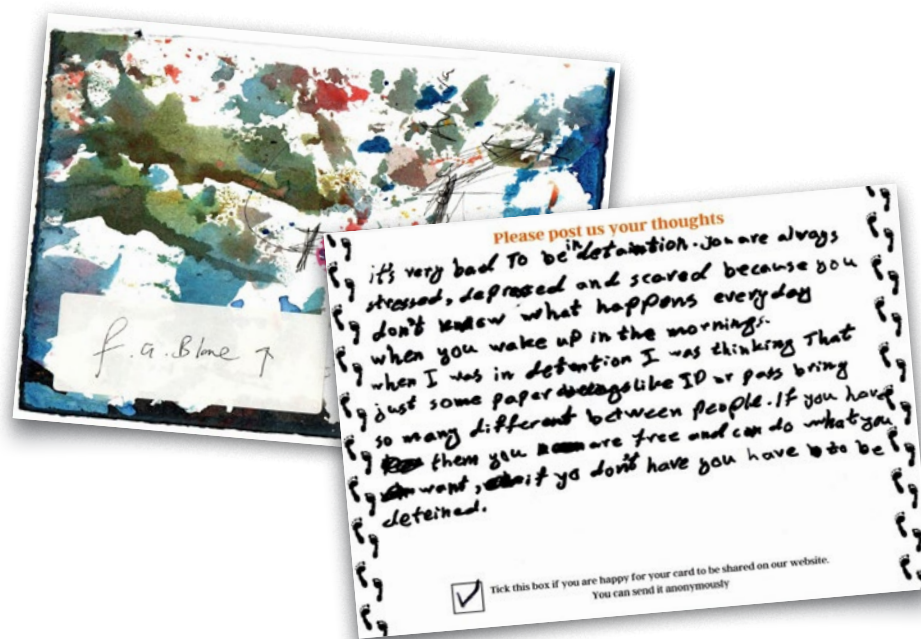 f. G. Blane ↑
Please post us your thoughts
it's very bad To be in detaintion. you are always
stressed, depressed and scared because you
don't know what happens everyday
when you wake up in the mornings.
when I was in detention I was thinking That
just some paper like ID or pass bring
so many different between people. If you have
them you are free and can do what you
want, if yo don't have you have to be
deteined.
Tick this box if you are happy for your card to be shared on our website.
You can send it anonymously